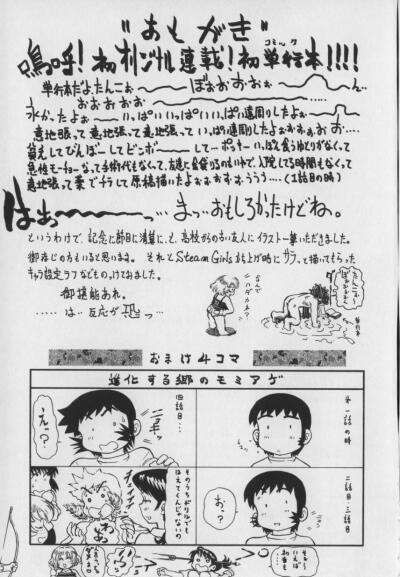 "あとがき"
嗚呼!初オリジナル連載!初単行本!!!!
コミック
単行本だよ、たんこぉ〜〜ぼぉぉぉぉぉ〜〜ん…
おぉおぉおぉ〜〜
永かったよぉ〜〜いっぱいいっぱいいっぱい遠周りしたよぉ〜
意地張って意地張って意地張っていっぱい遠周りしたよぉぉぉぉぉぉ….
貧乏してびんぼーしてビンボーして…ポッキーいっぽん食うゆとりがなくて
急性モーチョーなって手術代もなくて、友達に金貸りるのもイヤで、入院してる時間もなくて
意地張って薬でチラして原稿描いたよぉぉぉぉぉぅぅぅ….(1話目の時)
はぁっ〜〜〜っ…まっ…おもしろかったけどね。
というわけで、記念に節目に清算に、と、高校からの古い友人にイラスト一筆いただきました。
御存じの方もいると思います。それとSteam Girls立ち上げ時にサラッと描いてもらった
キャラ設定ラフなどものっけておきました。
御堪能あれ。
……は…反応が恐っ…
なんで
ハダカネ?
おまけ4コマ
進化する郷のモミアゲ
第一話の時
二話目・三話目
おっ?
四話目…
ニョキッ
えっ?
そのうちドリルでも
はえてくんじゃないの